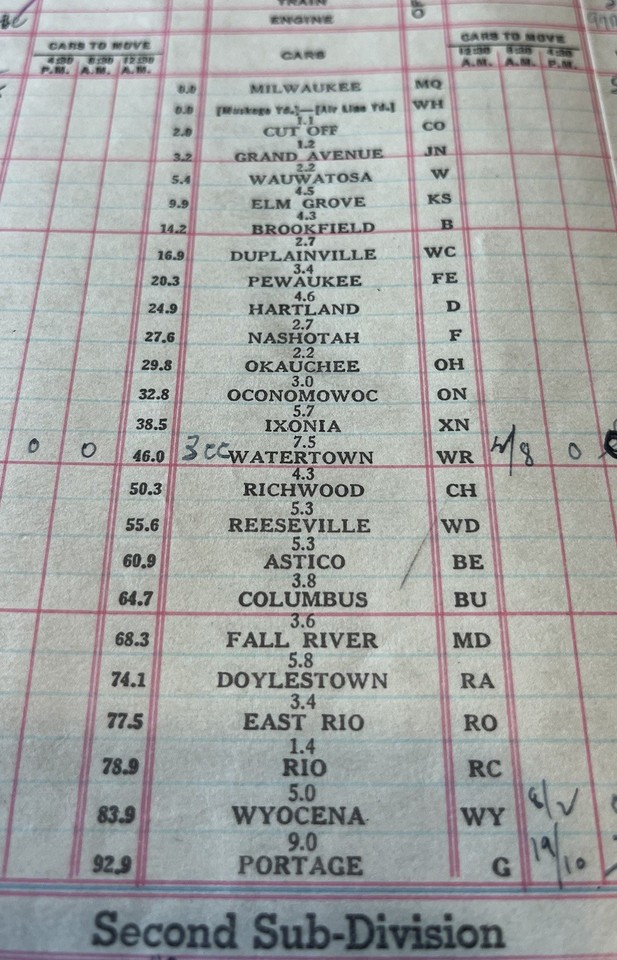 TRAIN
ENGINE
CARS TO MOVE CARS CARS TO MOVE
4:30 8:30 12:30 12:30 8:30 4:30
P.M. A.M. A.M. A.M. A.M. P.M.
0.0 MILWAUKEE MQ
0.0 [Muskego Yd.]—[Air Line Yd.] WH
1.1
2.0 CUT OFF CO
1.2
3.2 GRAND AVENUE JN
2.2
5.4 WAUWATOSA W
4.5
9.9 ELM GROVE KS
4.3
14.2 BROOKFIELD B
2.7
16.9 DUPLAINVILLE WC
3.4
20.3 PEWAUKEE FE
4.6
24.9 HARTLAND D
2.7
27.6 NASHOTAH F
2.2
29.8 OKAUCHEE OH
3.0
32.8 OCONOMOWOC ON
5.7
38.5 IXONIA XN
7.5
0 0 46.0 3 cc WATERTOWN WR 0
4.3
50.3 RICHWOOD CH
5.3
55.6 REESEVILLE WD
5.3
60.9 ASTICO BE
3.8
64.7 COLUMBUS BU
3.6
68.3 FALL RIVER MD
5.8
74.1 DOYLESTOWN RA
3.4
77.5 EAST RIO RO
1.4
78.9 RIO RC
5.0
83.9 WYOCENA WY
9.0
92.9 PORTAGE G 19/10
Second Sub-Division